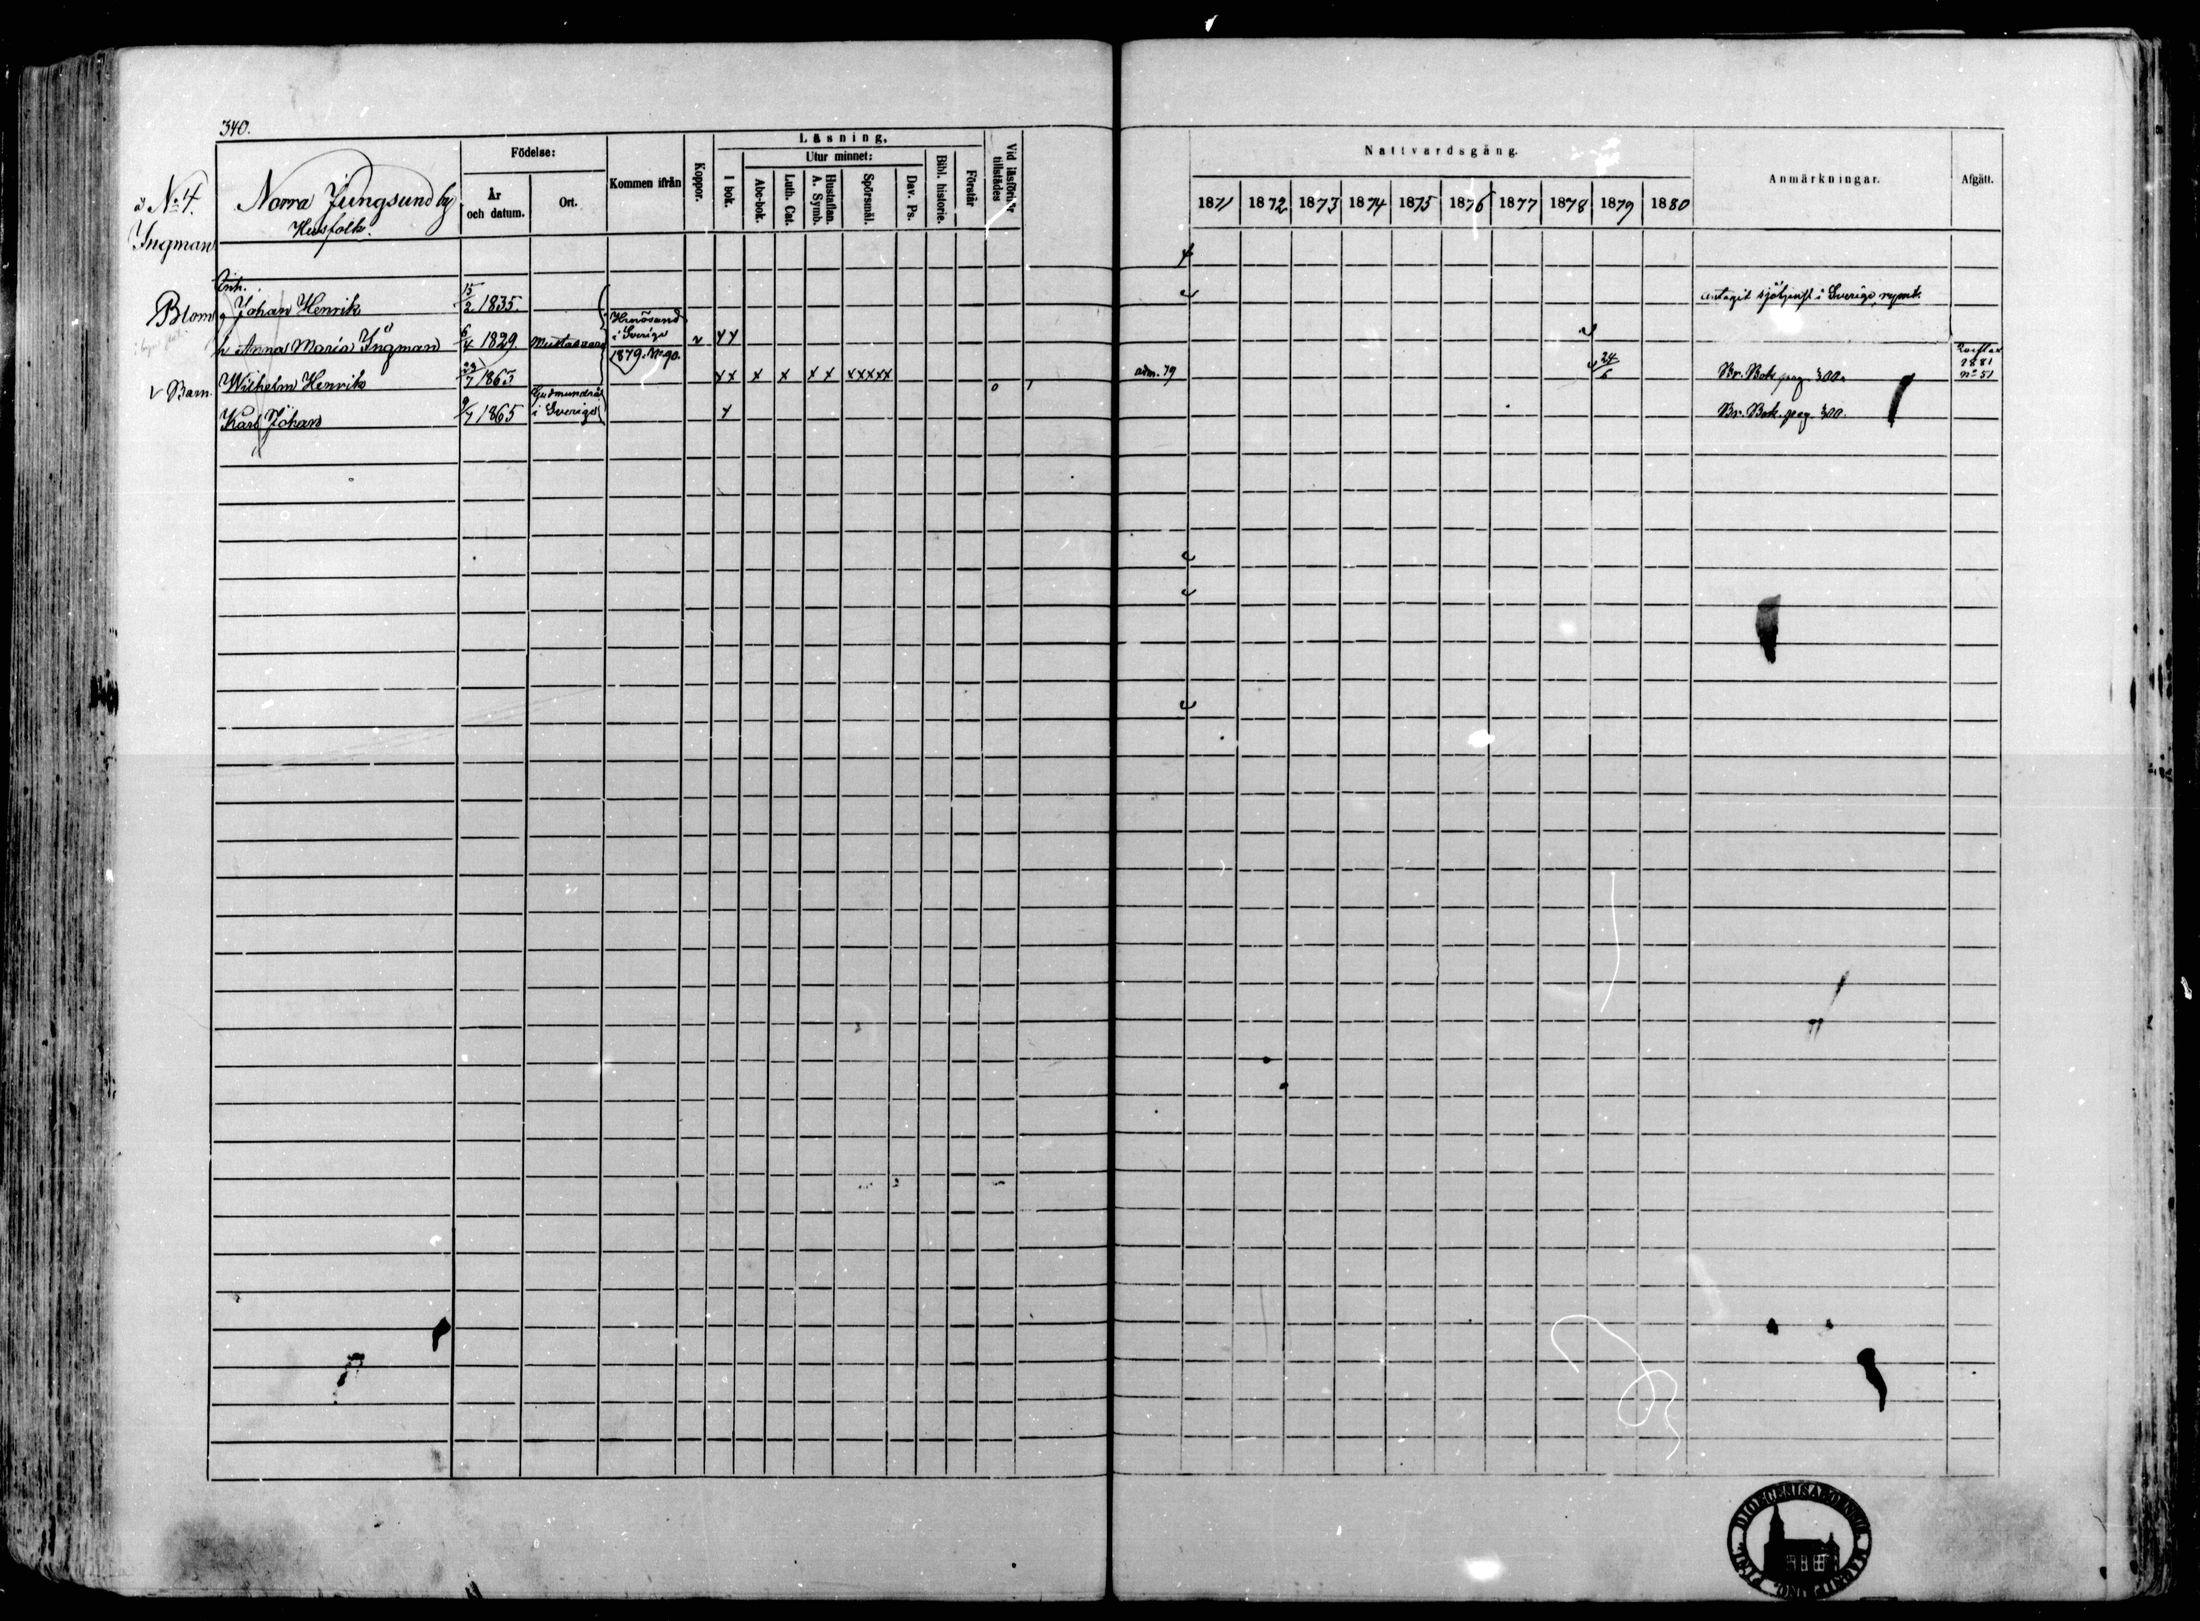 340.
Läsning,
Födelse:
Utur minnet:
Norra Jungsund by
Husfolk.
År och datum.
Ort.
Kommen ifrån
Koppor.
I bok.
Abc-bok.
Luth. Cat.
Hustaflan. A. Symb.
Spörsmål.
Dav. Ps.
Bibl. historie.
Förstår
Vid läsförhör tillstädes
Nattvardsgång.
1871 1872 1873 1874 1875 1876 1877 1878 1879 1880
Anmärkningar.
Afgått.
No 4.
Ingman
Enk.
Blom
Johan Henrik 15/2 1835. i Sverige, rymt.
Hernösand
i Sverige
1879. No 90.
h Anna Maria Ingman 6/4 1829. Mustasaari v x x
Barn. Wilhelm Henrik /7 1865 x x x x x x x x x x x 0 1 adm. 79 24/6 Br. Bok pag. 300.
1881
no 51
Karl Johan 9/7 1865 Gudmundrå
i Sverige x Br. Bok. pag. 300.
DIOECESISABOENSIS